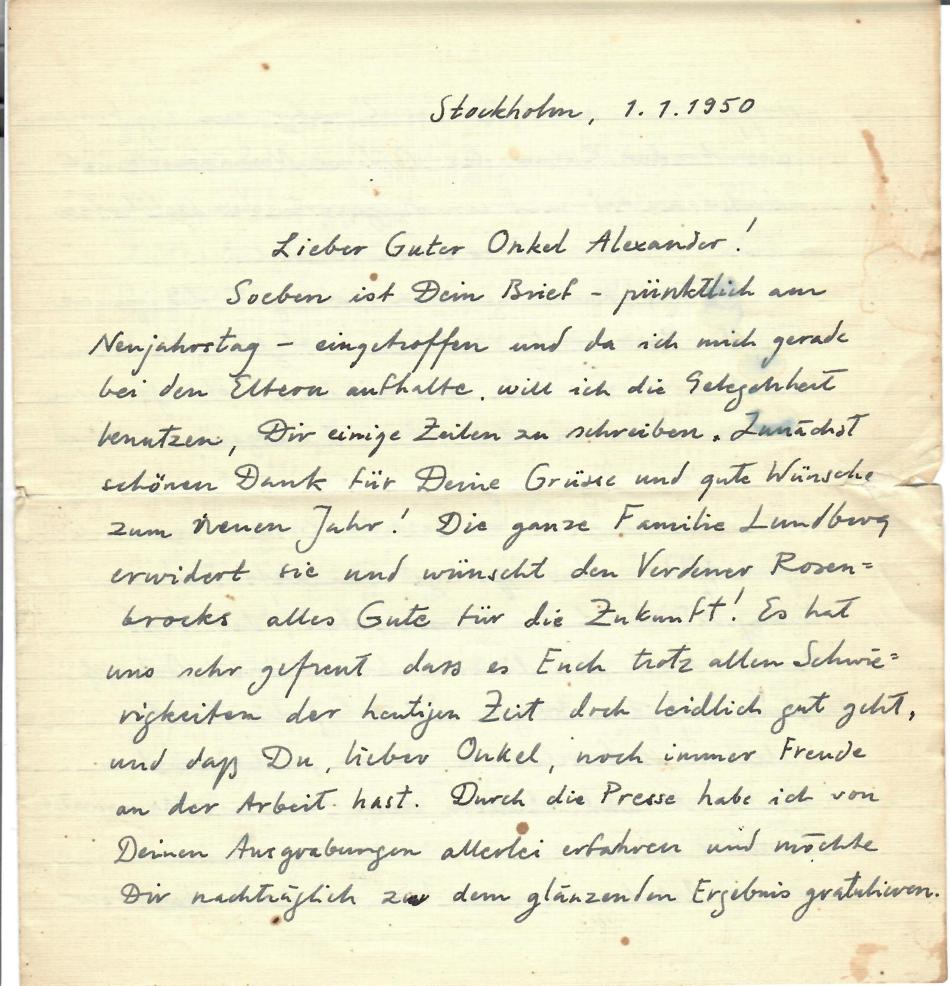 Stockholm, 1.1.1950
Lieber Guter Onkel Alexander!
Soeben ist Dein Brief – pünktlich am
Neujahrstag – eingetroffen und da ich mich gerade
bei den Eltern aufhalte, will ich die Gelegenheit
benutzen, Dir einige Zeilen zu schreiben. Zunächst
schönen Dank für Deine Grüsse und gute Wünsche
zum neuen Jahr! Die ganze Familie Lundberg
erwidert sie und wünscht den Verdener Rosen=
brocks alles Gute für die Zukunft! Es hat
uns sehr gefreut dass es Euch trotz allen Schwie=
rigkeiten der heutigen Zeit doch leidlich gut geht,
und daß Du, lieber Onkel, noch immer Freude
an der Arbeit hast. Durch die Presse habe ich von
Deinen Ausgrabungen allerlei erfahren und möchte
Dir nachträglich zu dem glänzenden Ergebnis gratulieren.